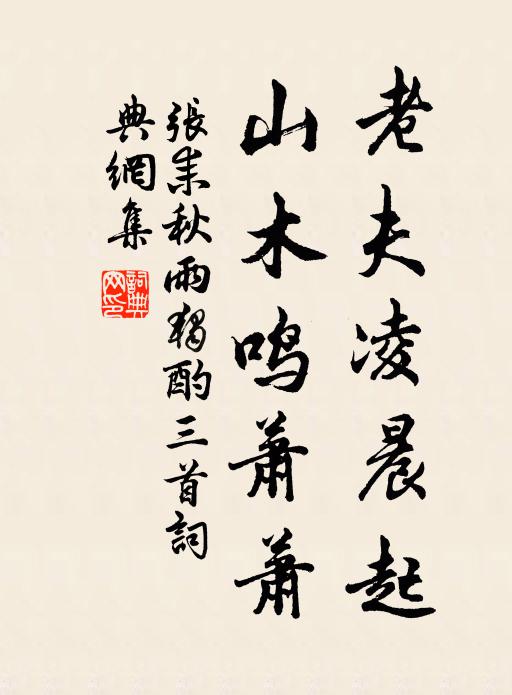 老夫凌晨起
山木鸣萧萧
張耒秋雨獨酌三首詞
典網集
詞典網印